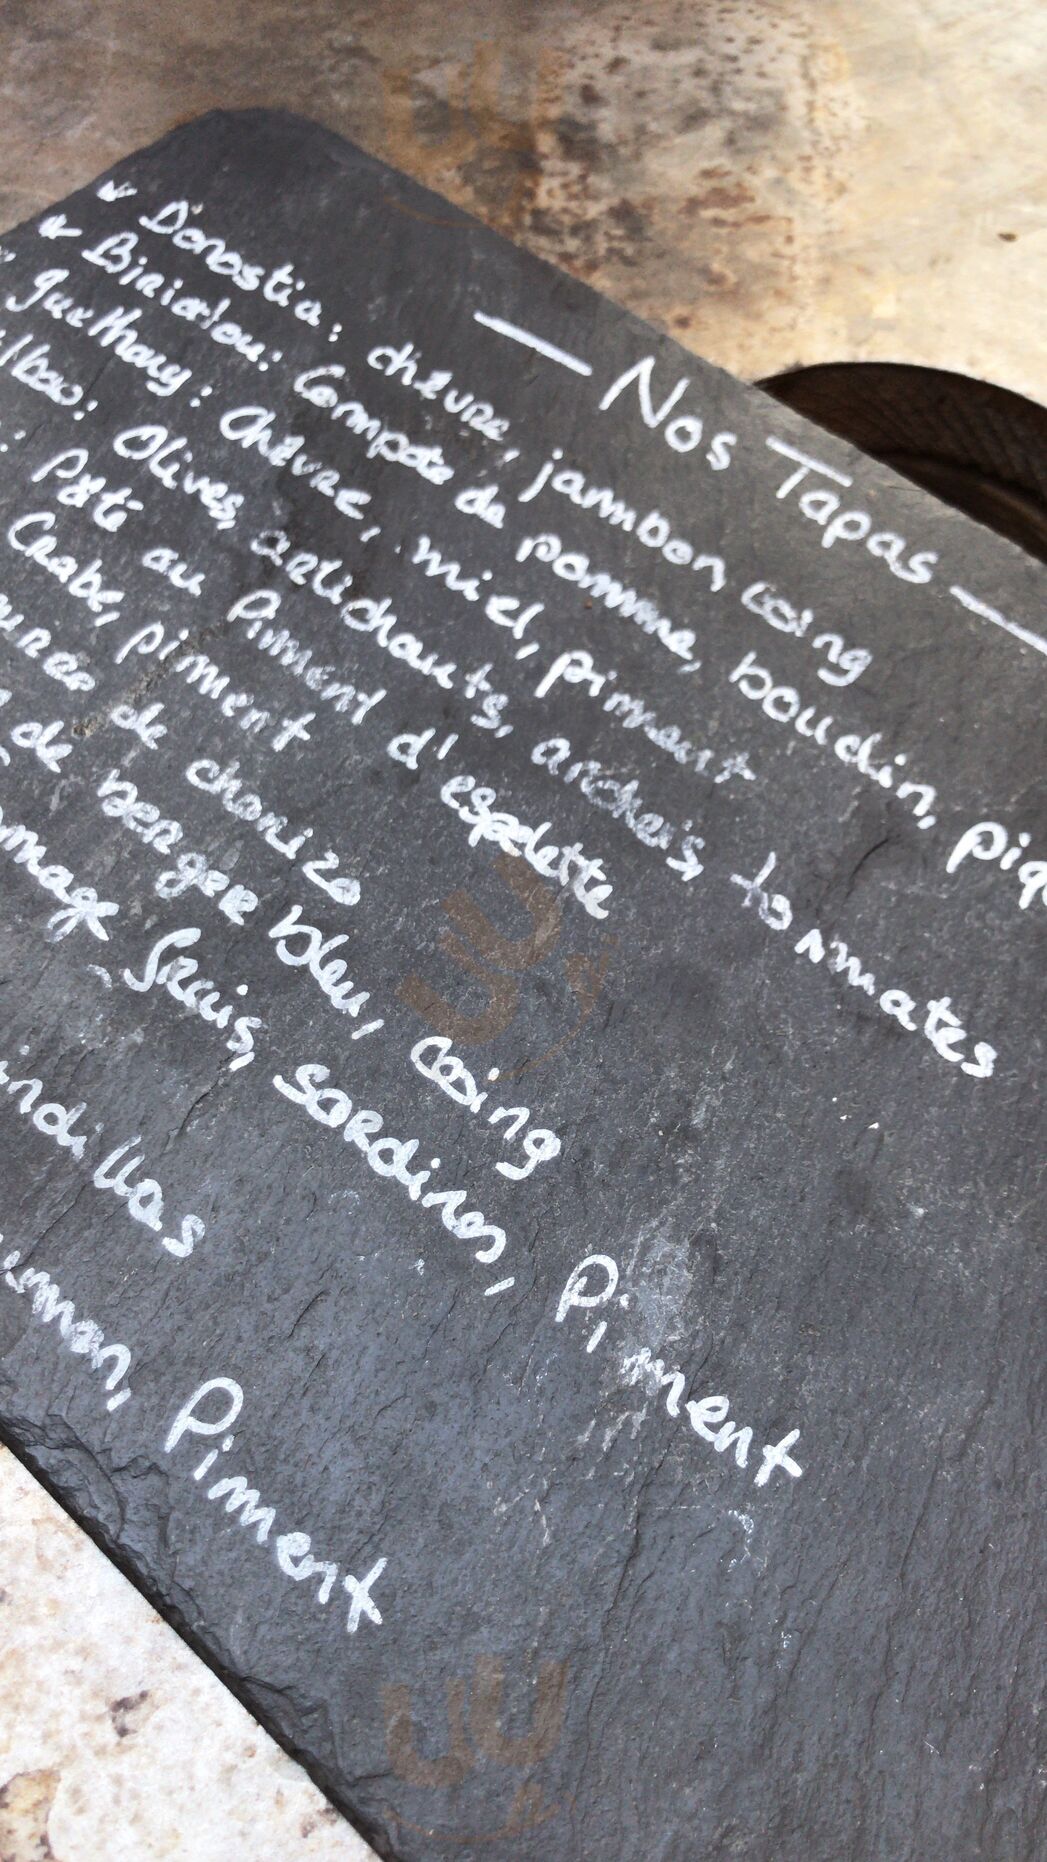 — Nos Tapas —
Donostia: chèvre, jambon, coing
Biriatou: Compote de pomme, boudin, piq
guethary: Chèvre, miel, piment
lbao: Olives, artichauts, anchois, tommates
: Pâté au Piment d'espelette
Crabe, piment
de chorizo
de berger bleu, coing
omage frais, sardines, Piment
indillas
Piment